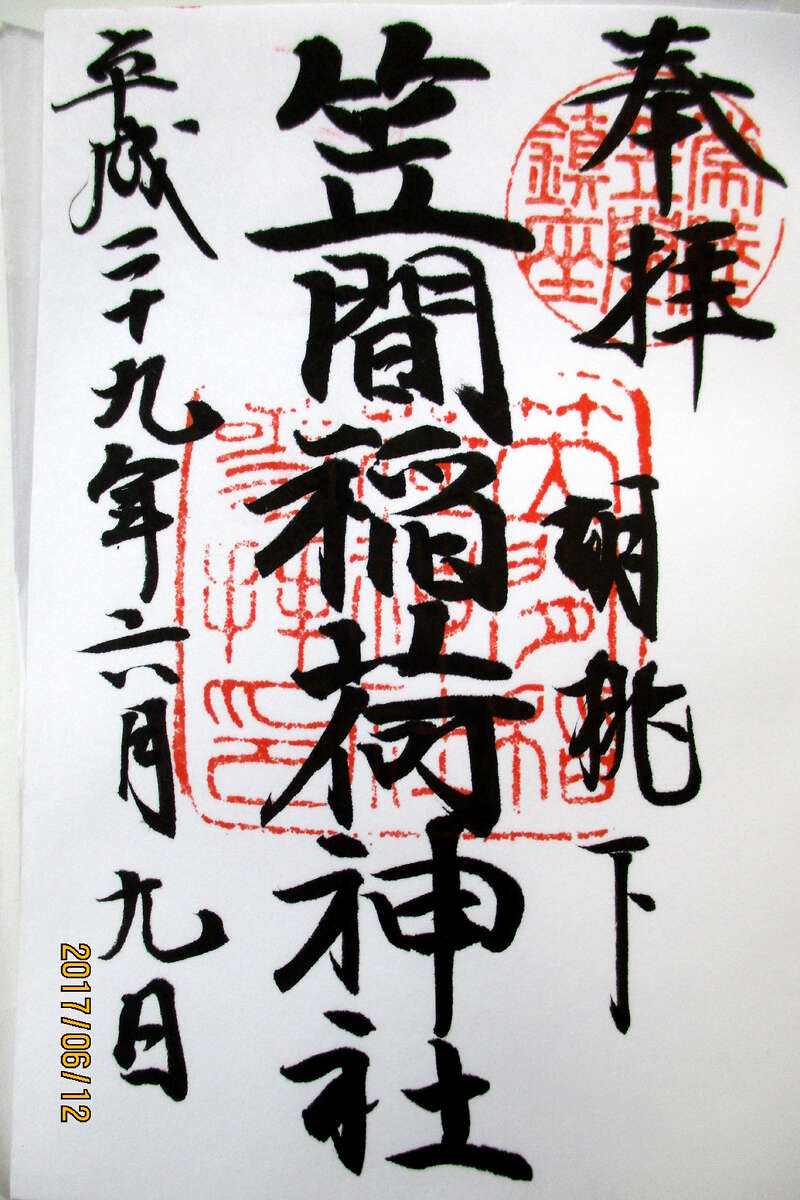 奉拝
胡桃下
笠間稲荷神社
平成二十九年六月九日
常陸
笠間
鎮座
2017/06/12